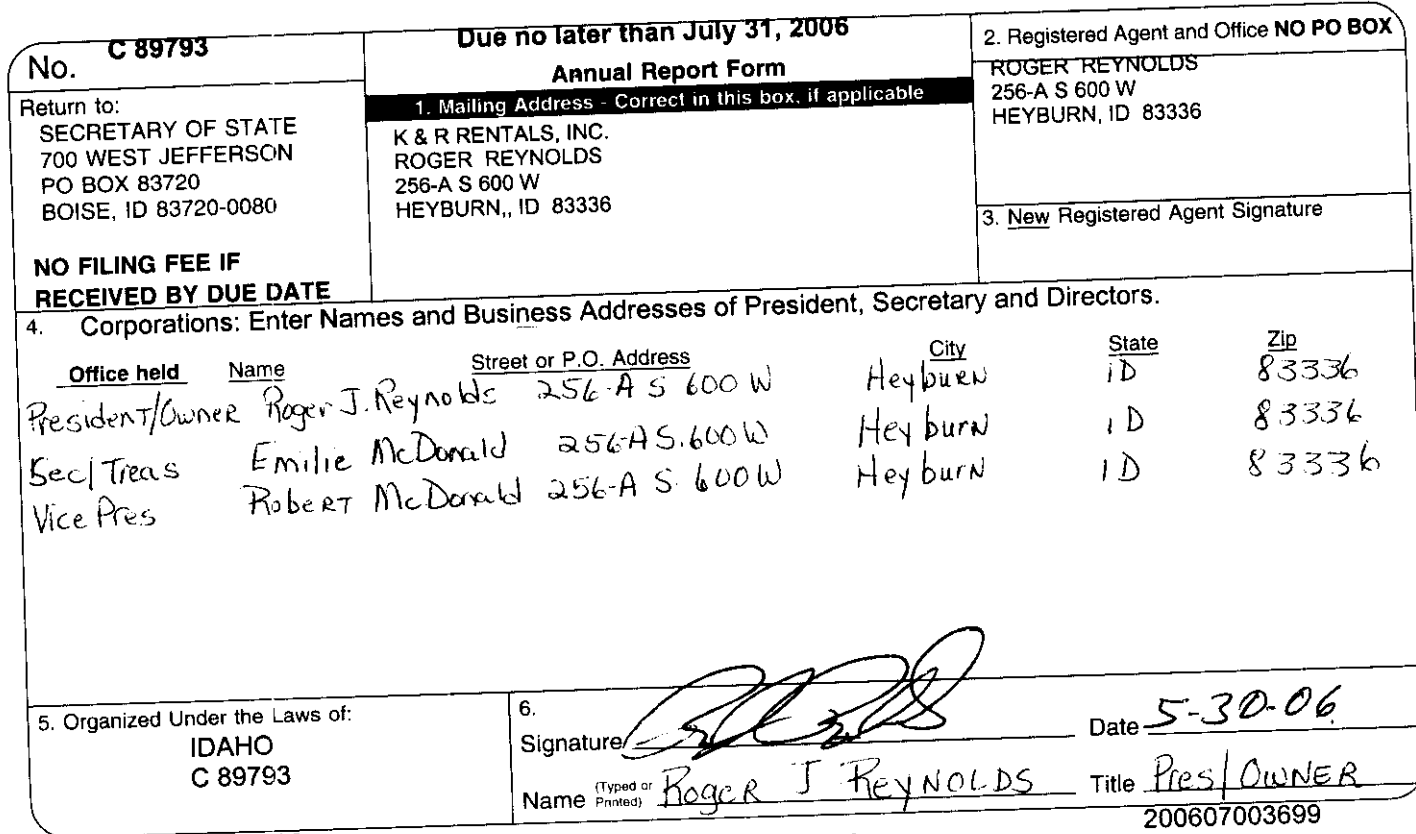 No. C 89793
Return to:
SECRETARY OF STATE
700 WEST JEFFERSON
PO BOX 83720
BOISE, ID 83720-0080
NO FILING FEE IF
RECEIVED BY DUE DATE
Due no later than July 31, 2006
Annual Report Form
1. Mailing Address - Correct in this box, if applicable
K & R RENTALS, INC.
ROGER REYNOLDS
256-A S 600 W
HEYBURN,, ID 83336
2. Registered Agent and Office NO PO BOX
ROGER REYNOLDS
256-A S 600 W
HEYBURN, ID 83336
3. New Registered Agent Signature
4. Corporations: Enter Names and Business Addresses of President, Secretary and Directors.
Office held Name Street or P.O. Address City State Zip
President/Owner Roger J. Reynolds 256-A S 600 W Heyburn ID 83336
Sec/Treas Emilie McDonald 256-A S. 600 W Heyburn ID 83336
Vice Pres Robert McDonald 256-A S. 600 W Heyburn ID 83336
5. Organized Under the Laws of:
IDAHO
C 89793
6.
Signature Date 5-30-06
Name (Typed or Printed) Roger J Reynolds Title Pres/Owner
200607003699